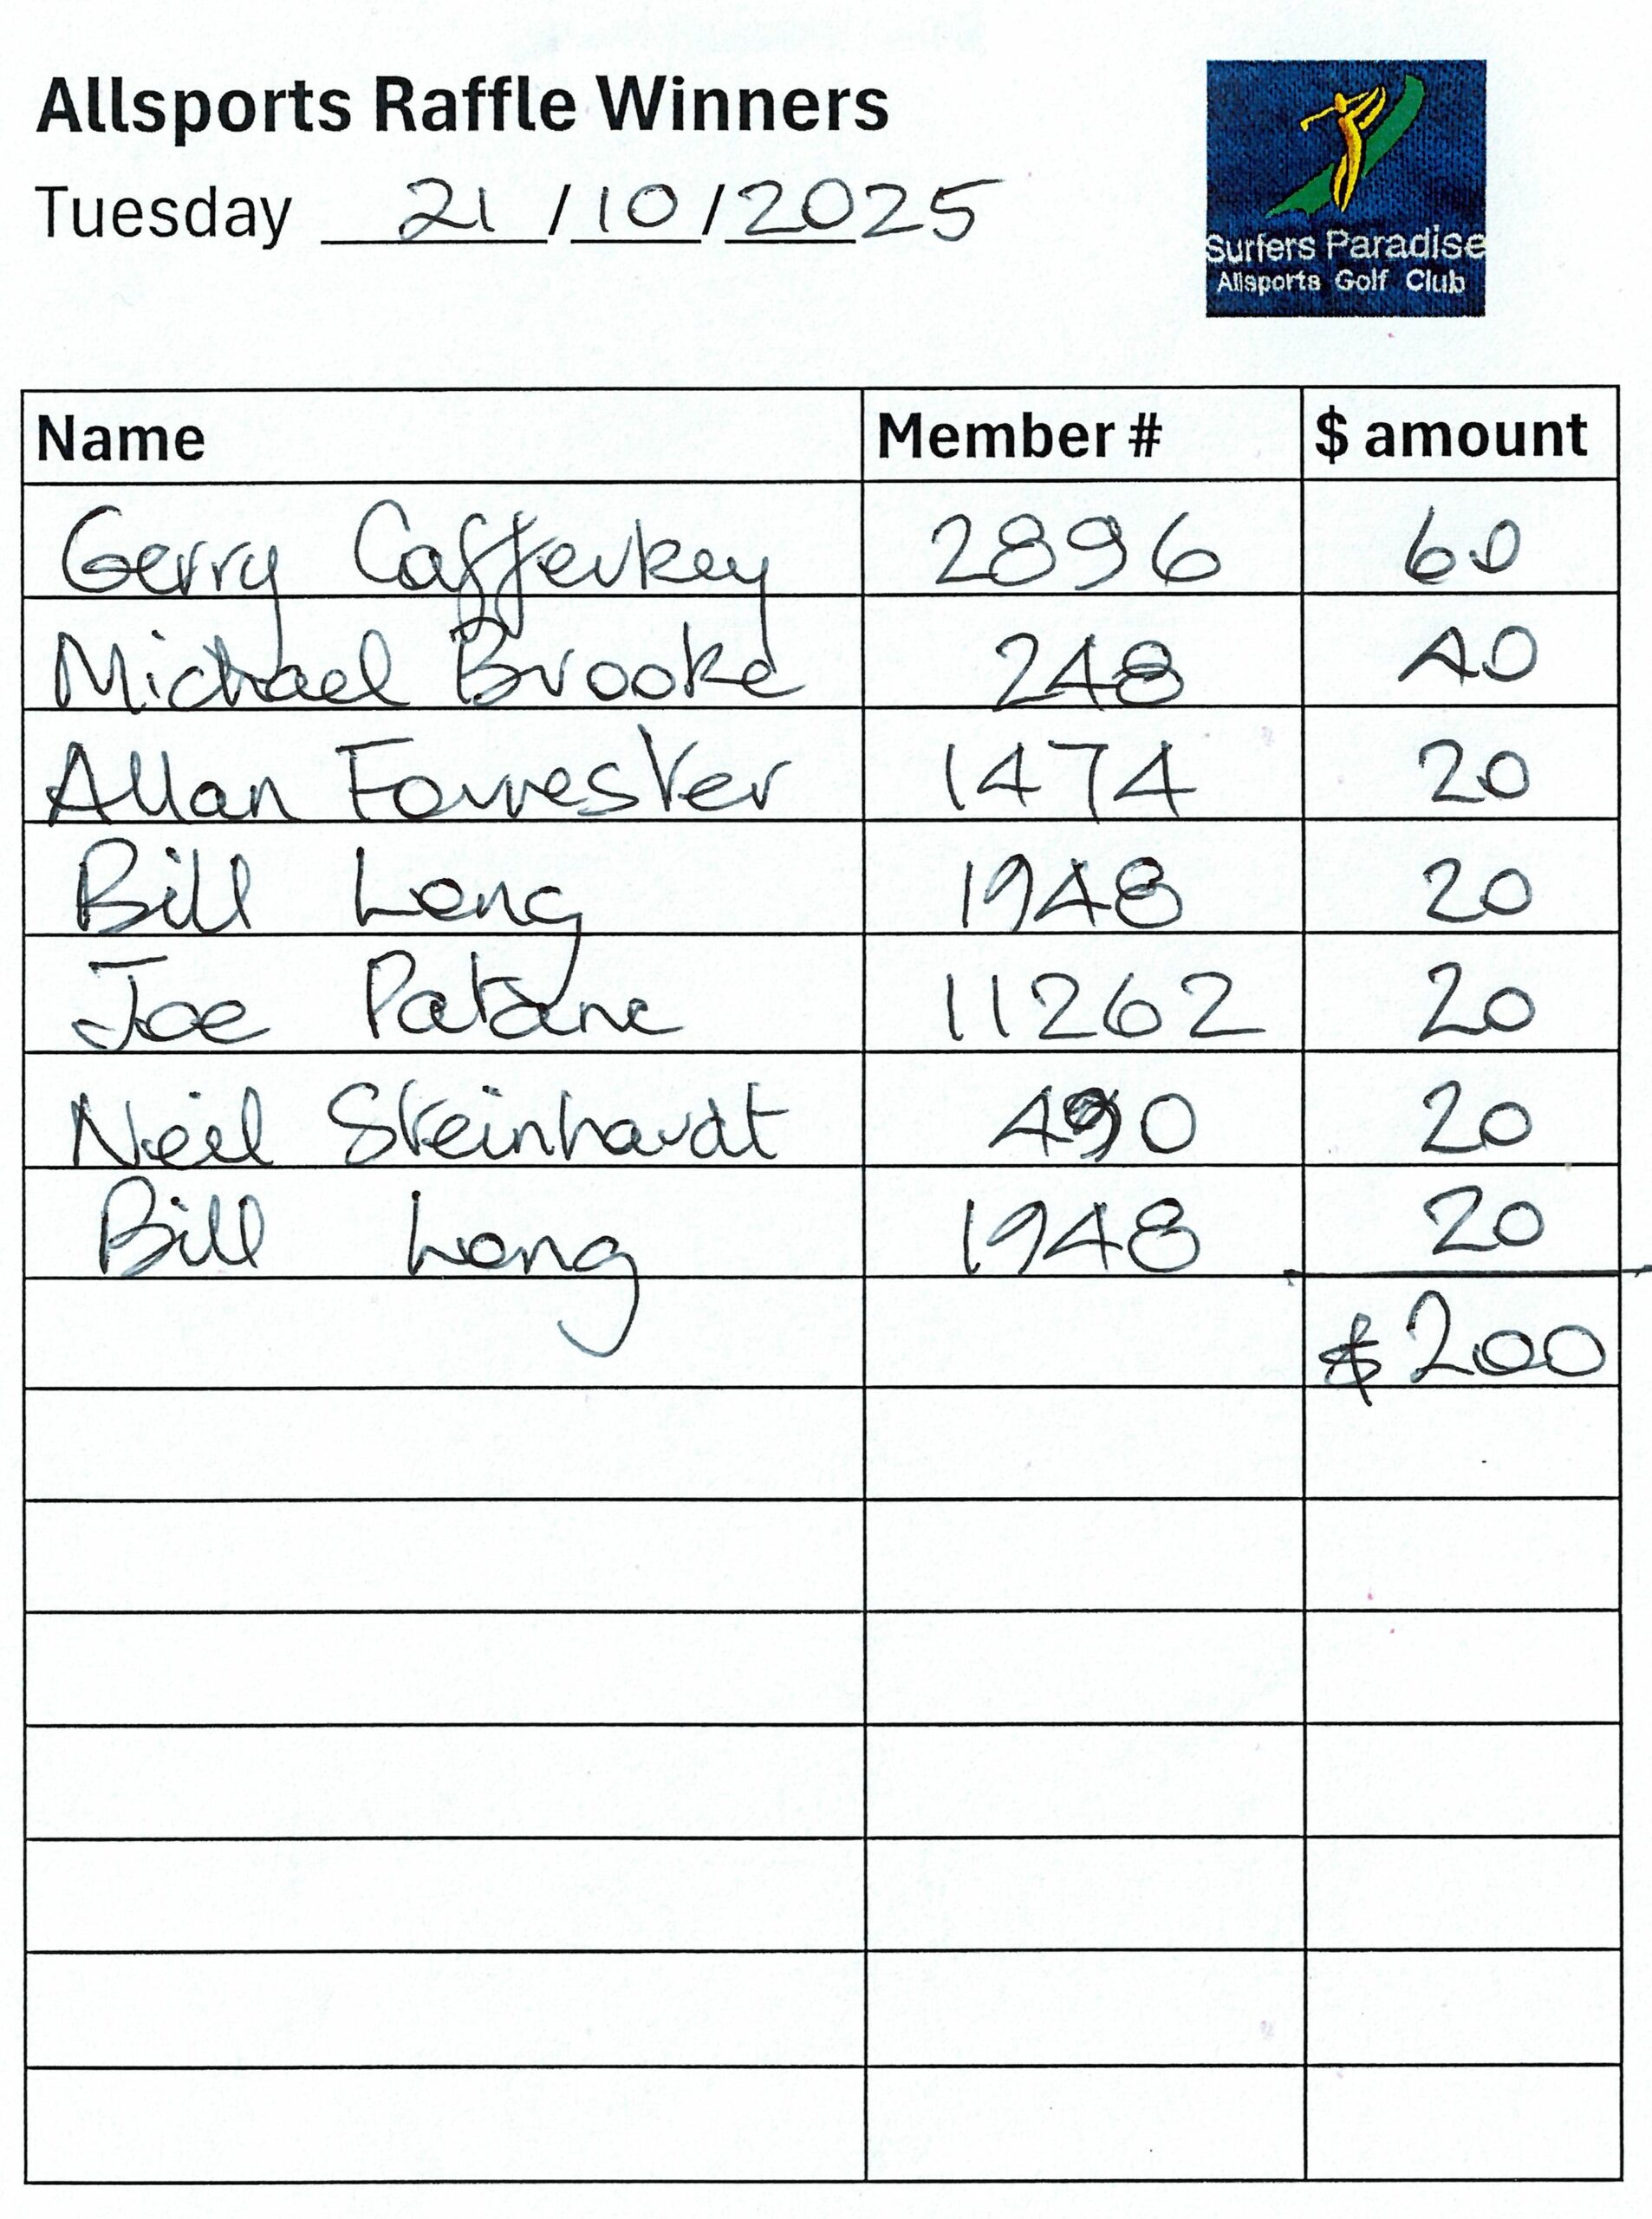 Allsports Raffle Winners
Tuesday 21/10/2025
Surfers Paradise
Allsports Golf Club
Name Member # $ amount
Gerry Cafferkey 2896 60
Michael Brooke 248 40
Allan Forrester 1474 20
Bill Long 1948 20
Joe Patane 11262 20
Neil Steinhardt 490 20
Bill Long 1948 20
$200